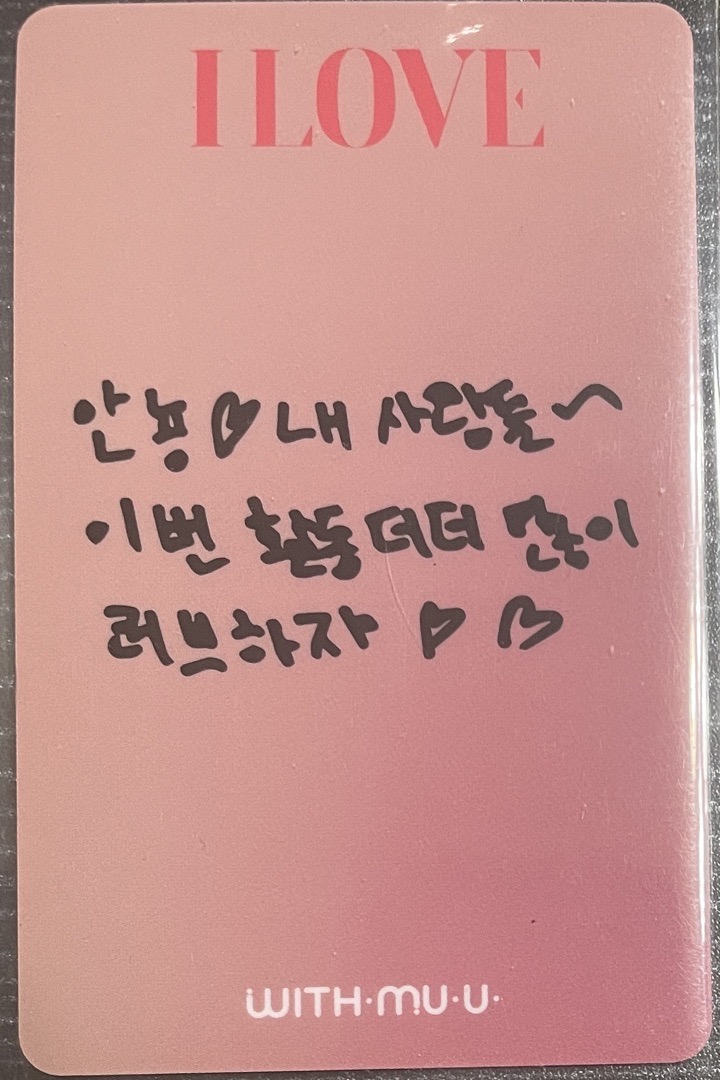 I LOVE
안뇽♡ 내 사랑들~
이번 활동 더더 많이
러브하자 ♡ ♡
WITH·MU·U·